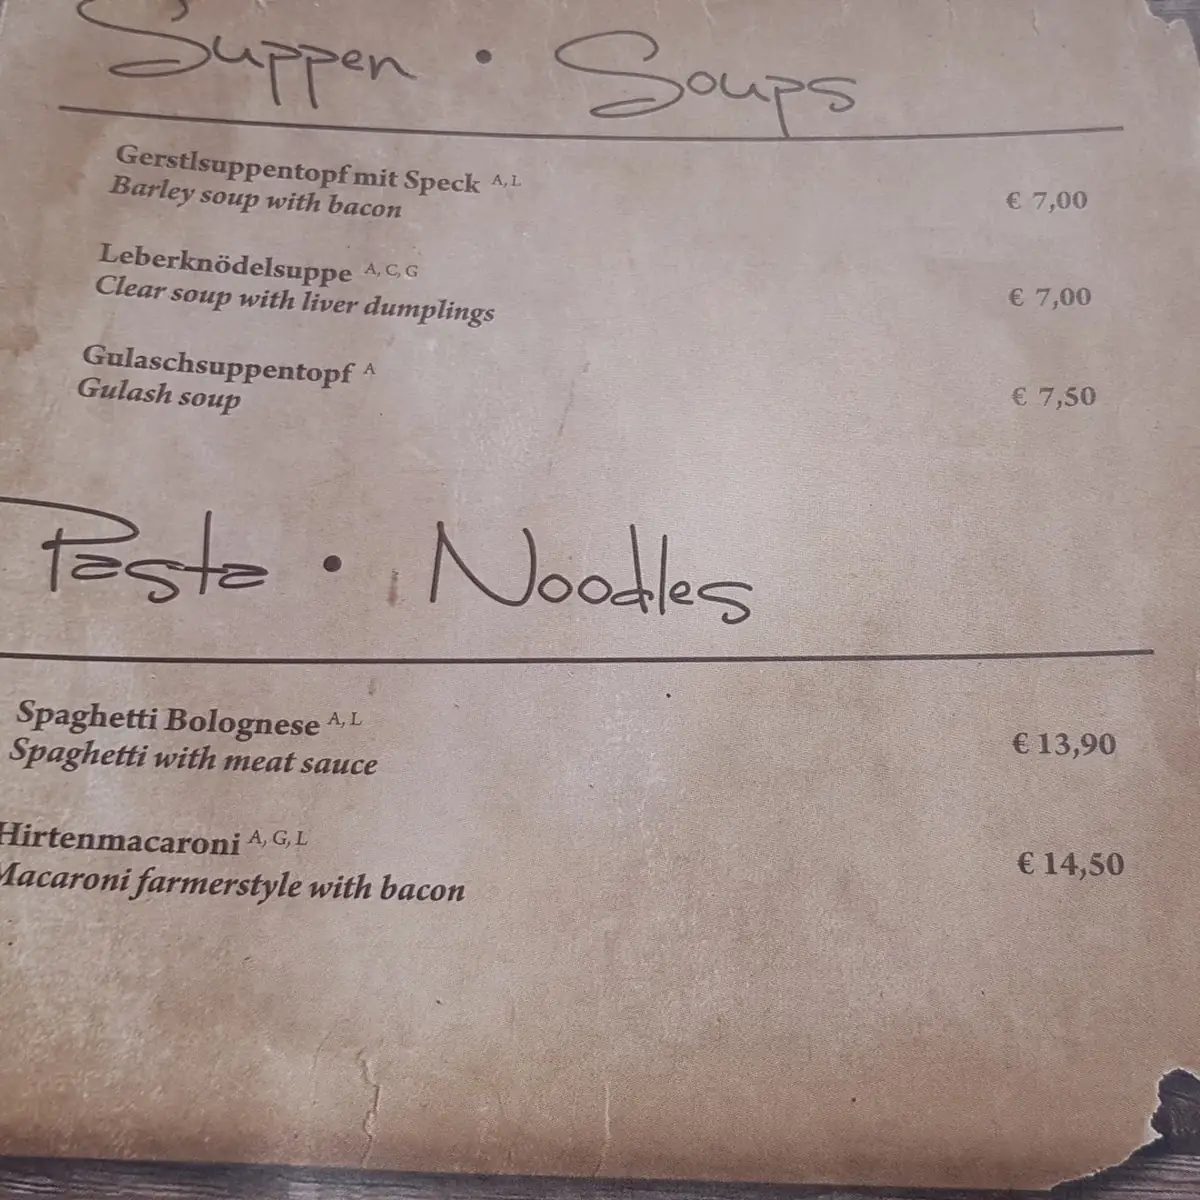 Suppen • Soups
Gerstlsuppentopf mit Speck A, L
Barley soup with bacon
€ 7,00
Leberknödelsuppe A, C, G
Clear soup with liver dumplings
€ 7,00
Gulaschsuppentopf A
Gulash soup
€ 7,50
Pasta • Noodles
Spaghetti Bolognese A, L
Spaghetti with meat sauce
€ 13,90
Hirtenmacaroni A, G, L
Macaroni farmerstyle with bacon
€ 14,50